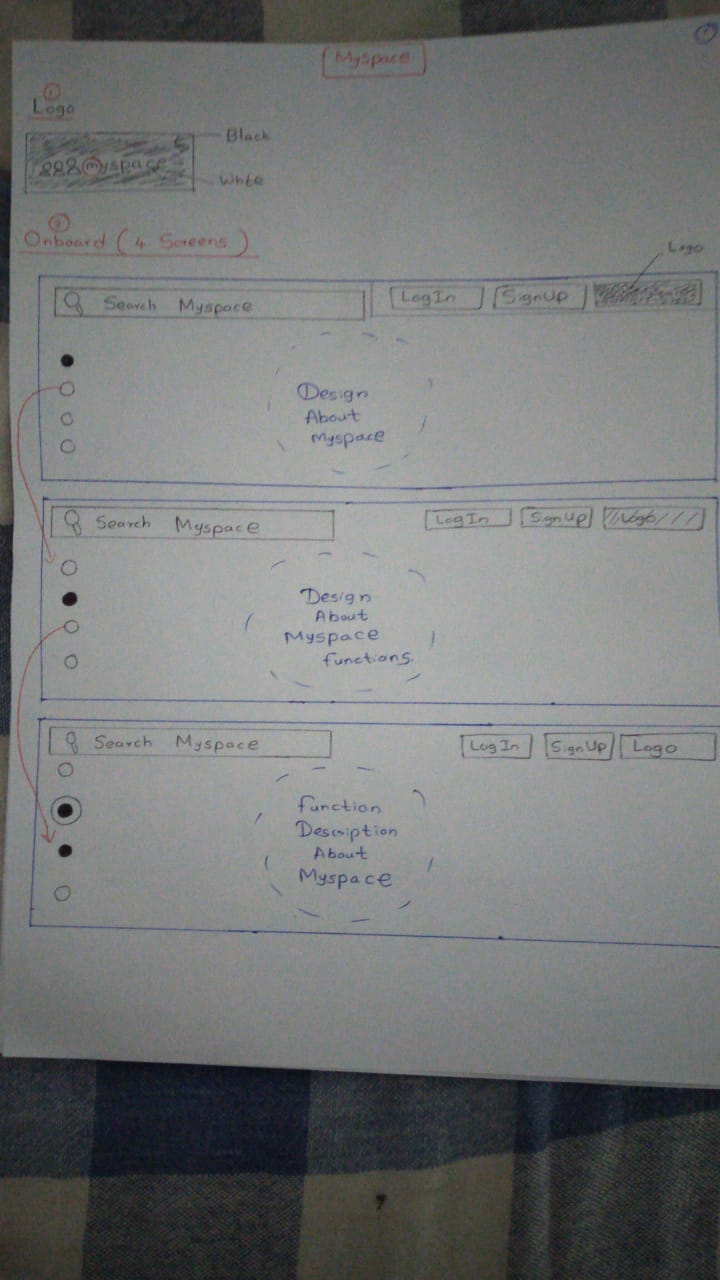 1
Myspace
1
Logo
Black
myspace
White
2
Onboard (4 Screens)
Logo
Search Myspace
LogIn
SignUp
Design
About
Myspace
Search Myspace
LogIn
SignUp
Logo
Design
About
Myspace
functions.
Search Myspace
LogIn
SignUp
Logo
function
Description
About
Myspace